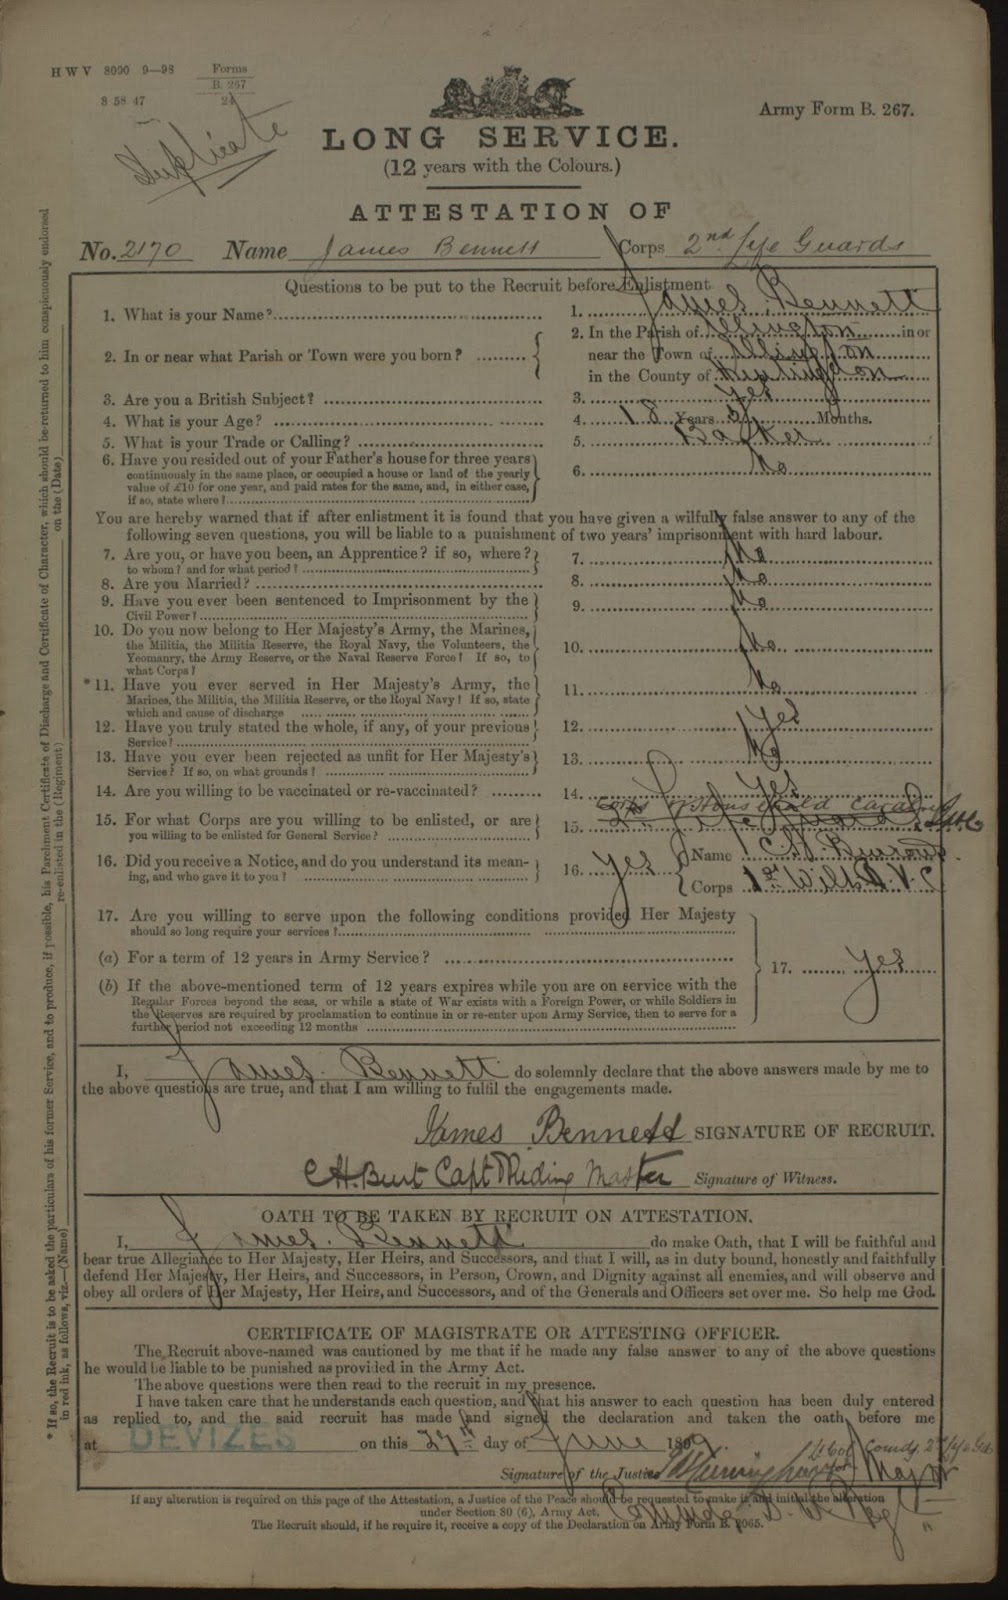 H W V 8000 9—98 Forms
B. 267
8 58 47 24
Duplicate
Army Form B. 267.
LONG SERVICE.
(12 years with the Colours.)
ATTESTATION OF
No. 2170 Name James Bennett Corps 2nd Life Guards
Questions to be put to the Recruit before Enlistment
1. What is your Name? 1. James Bennett
2. In or near what Parish or Town were you born? 2. In the Parish of in or
near the Town of
in the County of Huntingdon
3. Are you a British Subject? 3. Yes
4. What is your Age? 4. 18 Years Months.
5. What is your Trade or Calling? 5.
6. Have you resided out of your Father's house for three years
continuously in the same place, or occupied a house or land of the yearly
value of £10 for one year, and paid rates for the same, and, in either case,
if so, state where? 6. No
You are hereby warned that if after enlistment it is found that you have given a wilfully false answer to any of the
following seven questions, you will be liable to a punishment of two years' imprisonment with hard labour.
7. Are you, or have you been, an Apprentice? if so, where?
to whom? and for what period? 7. No
8. Are you Married? 8. No
9. Have you ever been sentenced to Imprisonment by the
Civil Power? 9. No
10. Do you now belong to Her Majesty's Army, the Marines,
the Militia, the Militia Reserve, the Royal Navy, the Volunteers, the
Yeomanry, the Army Reserve, or the Naval Reserve Force? If so, to
what Corps? 10. No
* 11. Have you ever served in Her Majesty's Army, the
Marines, the Militia, the Militia Reserve, or the Royal Navy? If so, state
which and cause of discharge 11. No
12. Have you truly stated the whole, if any, of your previous
Service? 12. Yes
13. Have you ever been rejected as unfit for Her Majesty's
Service? If so, on what grounds? 13. No
14. Are you willing to be vaccinated or re-vaccinated? 14. Yes
15. For what Corps are you willing to be enlisted, or are
you willing to be enlisted for General Service? 15. Corps of Household Cavalry
16. Did you receive a Notice, and do you understand its mean-
ing, and who gave it to you? 16. Yes Name
Corps 1st Wilts R.V.C
17. Are you willing to serve upon the following conditions provided Her Majesty
should so long require your services?
(a) For a term of 12 years in Army Service? 17. Yes
(b) If the above-mentioned term of 12 years expires while you are on service with the
Regular Forces beyond the seas, or while a state of War exists with a Foreign Power, or while Soldiers in
the Reserves are required by proclamation to continue in or re-enter upon Army Service, then to serve for a
further period not exceeding 12 months
I, James Bennett do solemnly declare that the above answers made by me to
the above questions are true, and that I am willing to fulfil the engagements made.
James Bennett SIGNATURE OF RECRUIT.
C H Burt Capt & Riding Master Signature of Witness.
OATH TO BE TAKEN BY RECRUIT ON ATTESTATION.
I, James Bennett do make Oath, that I will be faithful and
bear true Allegiance to Her Majesty, Her Heirs, and Successors, and that I will, as in duty bound, honestly and faithfully
defend Her Majesty, Her Heirs, and Successors, in Person, Crown, and Dignity against all enemies, and will observe and
obey all orders of Her Majesty, Her Heirs, and Successors, and of the Generals and Officers set over me. So help me God.
CERTIFICATE OF MAGISTRATE OR ATTESTING OFFICER.
The Recruit above-named was cautioned by me that if he made any false answer to any of the above questions
he would be liable to be punished as provided in the Army Act.
The above questions were then read to the recruit in my presence.
I have taken care that he understands each question, and that his answer to each question has been duly entered
as replied to, and the said recruit has made and signed the declaration and taken the oath before me
at DEVIZES on this 27th day of June 1899.
Lt Col Comdg 2nd Life Gds
Signature of the Justice for Major
If any alteration is required on this page of the Attestation, a Justice of the Peace should be requested to make it and initial the alteration
under Section 80 (6), Army Act.
The Recruit should, if he require it, receive a copy of the Declaration on Army Form B. 2065.
* If so, the Recruit is to be asked the particulars of his former Service, and to produce, if possible, his Parchment Certificate of Discharge and Certificate of Character, which should be returned to him conspicuously endorsed
in red ink, as follows, viz.—(Name) re-enlisted in the (Regiment) on the (Date)